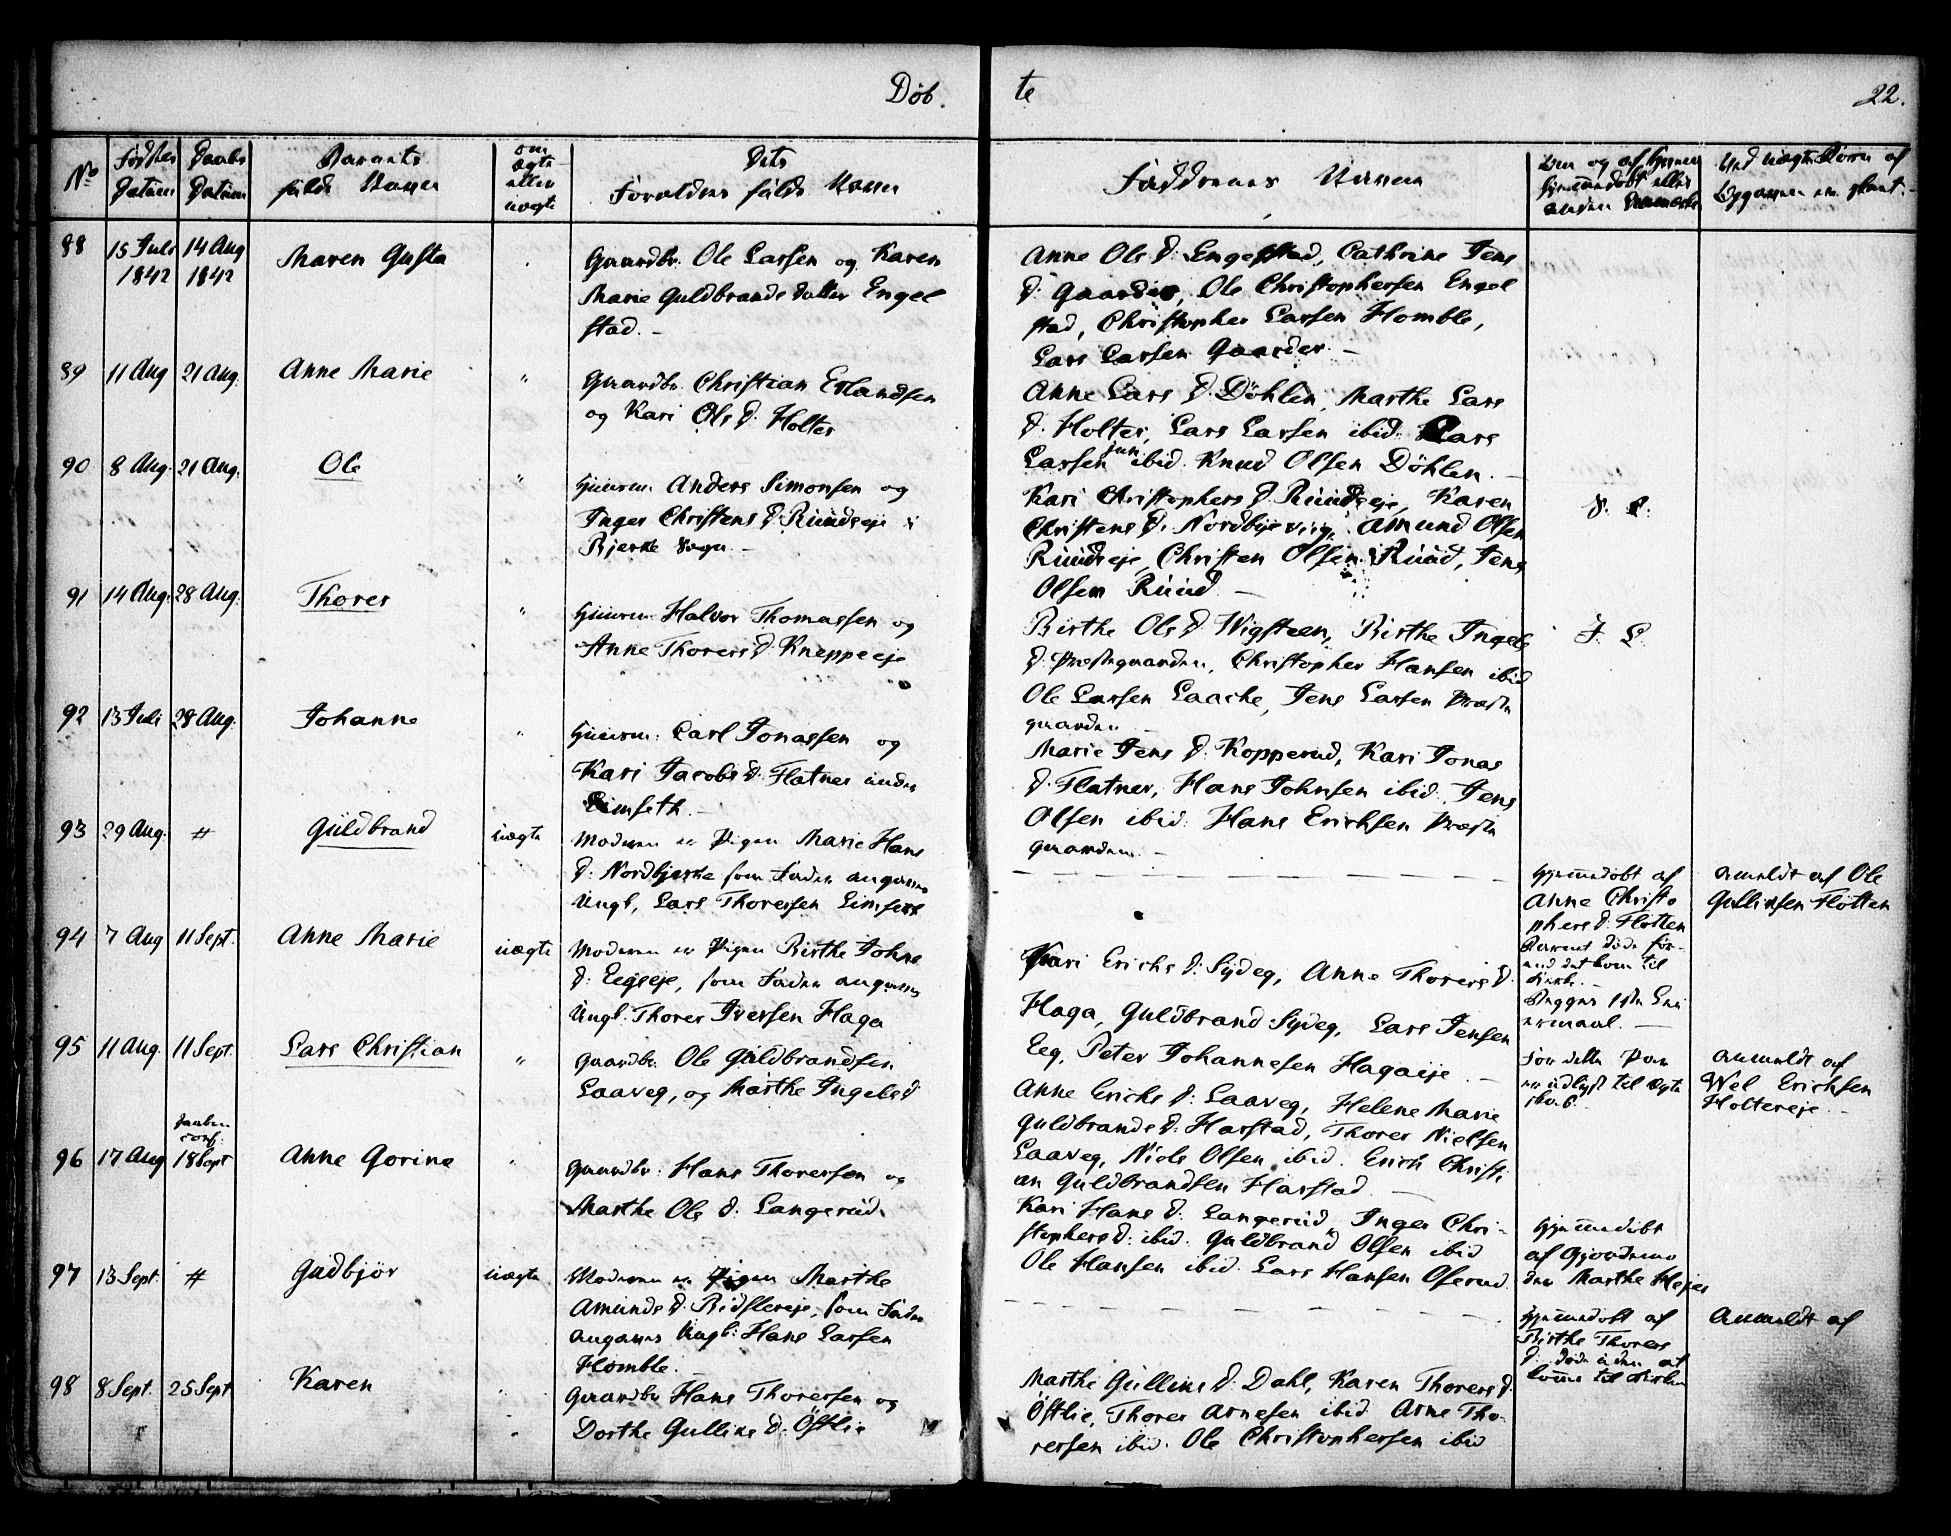 Døb. te 22.
No
Fødsels Datum
Daabs Datum
Barnets fulde Navn
om ægte eller uægte
Dets Forældres fulde Navn
Faddernes Navne
Ved uægte Børn af
88
15 Juli 1842
14 Aug 1842
Maren Gusta
Gaardbr. Ole Larsen og Karen
Marie Guldbrands datter Engel
stad. -
Anne Ols d. Engelstad, Cathrine Jens
d. Gaarder, Ole Christophersen Engel
stad, Christopher Larsen Homble,
Lars Larsen Gaarder. -
89
11 Aug
21 Aug.
Anne Marie
"
Gaardbr. Christian Erlandsen
og Kari Ols d. Holter
Anne Lars d. Döhlin, Marthe Lars
d. Holter, Lars Larsen ibid. Lars
Larsen jun ibid. Knud Olsen Döhlen. -
90
8 Aug.
21 Aug.
Ole
"
Huusm. Anders Simonsen og
Inger Christens d. Ruudseje i
Bjerke Sogn. -
Kari Christophers d. Ruudseje, Karen
Christens d. Nordbye, Amund Olsen
Ruudseje, Christen Olsen Ruud, Jens
Olsen Ruud -
91
14 Aug.
28 Aug.
Thorer
"
Huusm. Halvor Thomassen og
Anne Thorers d. Kneppeeje
Birthe Ols d. Wigsteen, Birthe Ingels
d. Præstegaarden, Christopher Hansen ibid
Ole Larsen Laache, Jens Larsen Præste
gaarden -
J. L.
92
13 Juli
28 Aug.
Johanne
"
Huusm. Carl Jonassen og
Kari Jacobs d. Flatner under
Limseth. -
Marie Jens d. Kopperud, Kari Jonas
d. Flatner, Hans Johnsen ibid. Jens
Olsen ibid: Hans Erichsen Præste
gaarden. -
93
29 Aug.
#
Guldbrand
uægte
Moderen er Pigen Marie Hans
d. Nordbjerke som Fader angives
Ungk. Lars Thorersen Limseth
Hjemmedøbt af
Anne Christo
phers d. Flotten
Barnet døde før-
end det kom til
Kirke. -
Anmeldt af Ole
Gullixsen Flotten
94
7 Aug
11 Sept.
Anne Marie
uægte
Moderen er Pigen Birthe Johns
d. Eegseje, som Fader angives
Ungk. Thorer Iversen Haga
Kari Erichs d. Sydeg, Anne Thorers d.
Haga, Guldbrand Sydeg, Lars Jensen
Eeg, Peter Johannesen Hagaeje. -
Begges 1ste Lei
ermaal. -
For dette Par
er udlyst til ægte
skab. -
Anmeldt af
Wel Erichsen
Holtereje -
95
11 Aug.
11 Sept.
Lars Christian
"
Gaardbr. Ole Guldbrandsen
Laaveg, og Marthe Ingebs d
Anne Erichs d. Laaveg, Helene Marie
Guldbrands d. Harstad, Thorer Nielsen
Laaveg, Niels Olsen ibid. Erich Christi
an Guldbrandsen Harstad -
96
17 Aug
Daaben conf.
18 Sept
Anne Gorine
"
Gaardbr. Hans Thorersen og
Marthe Ols d. Langerud.
Kari Hans d. Langerud, Inger Chri-
stophers d. ibid. Guldbrand Olsen ibid
Ole Hansen ibid. Lars Hansen Oserud.
Hjemmedøbt
af Gjordemo
der Marthe Hejer
97
13 Sept.
#
Gudbjør
uægte
Moderen er Pigen Marthe
Amunds d. Ridslereje, som Fader
angives Ungk: Hans Larsen
Homble.
Hjemmedøbt af
Birthe Thorers
d. døde uden at
komme til Kirken
Anmeldt af
98
8 Sept.
25 Sept.
Karen
"
Gaardbr Hans Thorersen og
Dorthe Gulliks d. Östlie
Marthe Gulliks d. Dahl, Karen Thorers d.
Östlie, Thorer Arnesen ibid Arne Tho-
rersen ibid. Ole Christophersen ibid